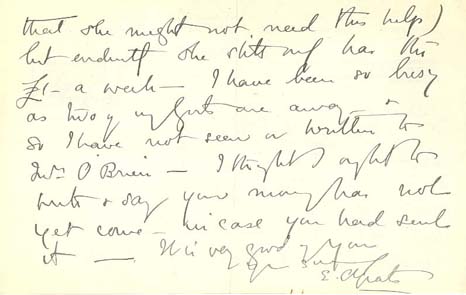 that she might not need this help)
but she still has this
£1- a week - I have been so busy
as two of my are away - &
so I have not seen or written to
Mrs O'Brien - I thought I ought to
write & say your money has not
yet come - in case you had sent
it — It is very good of you
E.